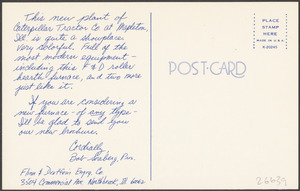 This new plant of
Caterpillar Tractor Co at Mapleton,
Ill is quite a showplace.
Very colorful. Full of the
most modern equipment -
including this F & D roller
hearth furnace, and two more
just like it.
If you are considering a
new furnace - of any type -
I'll be glad to send you
our new brochure.
Cordially,
Bob
3504 Commercial Ave. Northbrook, Ill 60062
POST-CARD
PLACE
STAMP
HERE
MADE IN U.S.A.